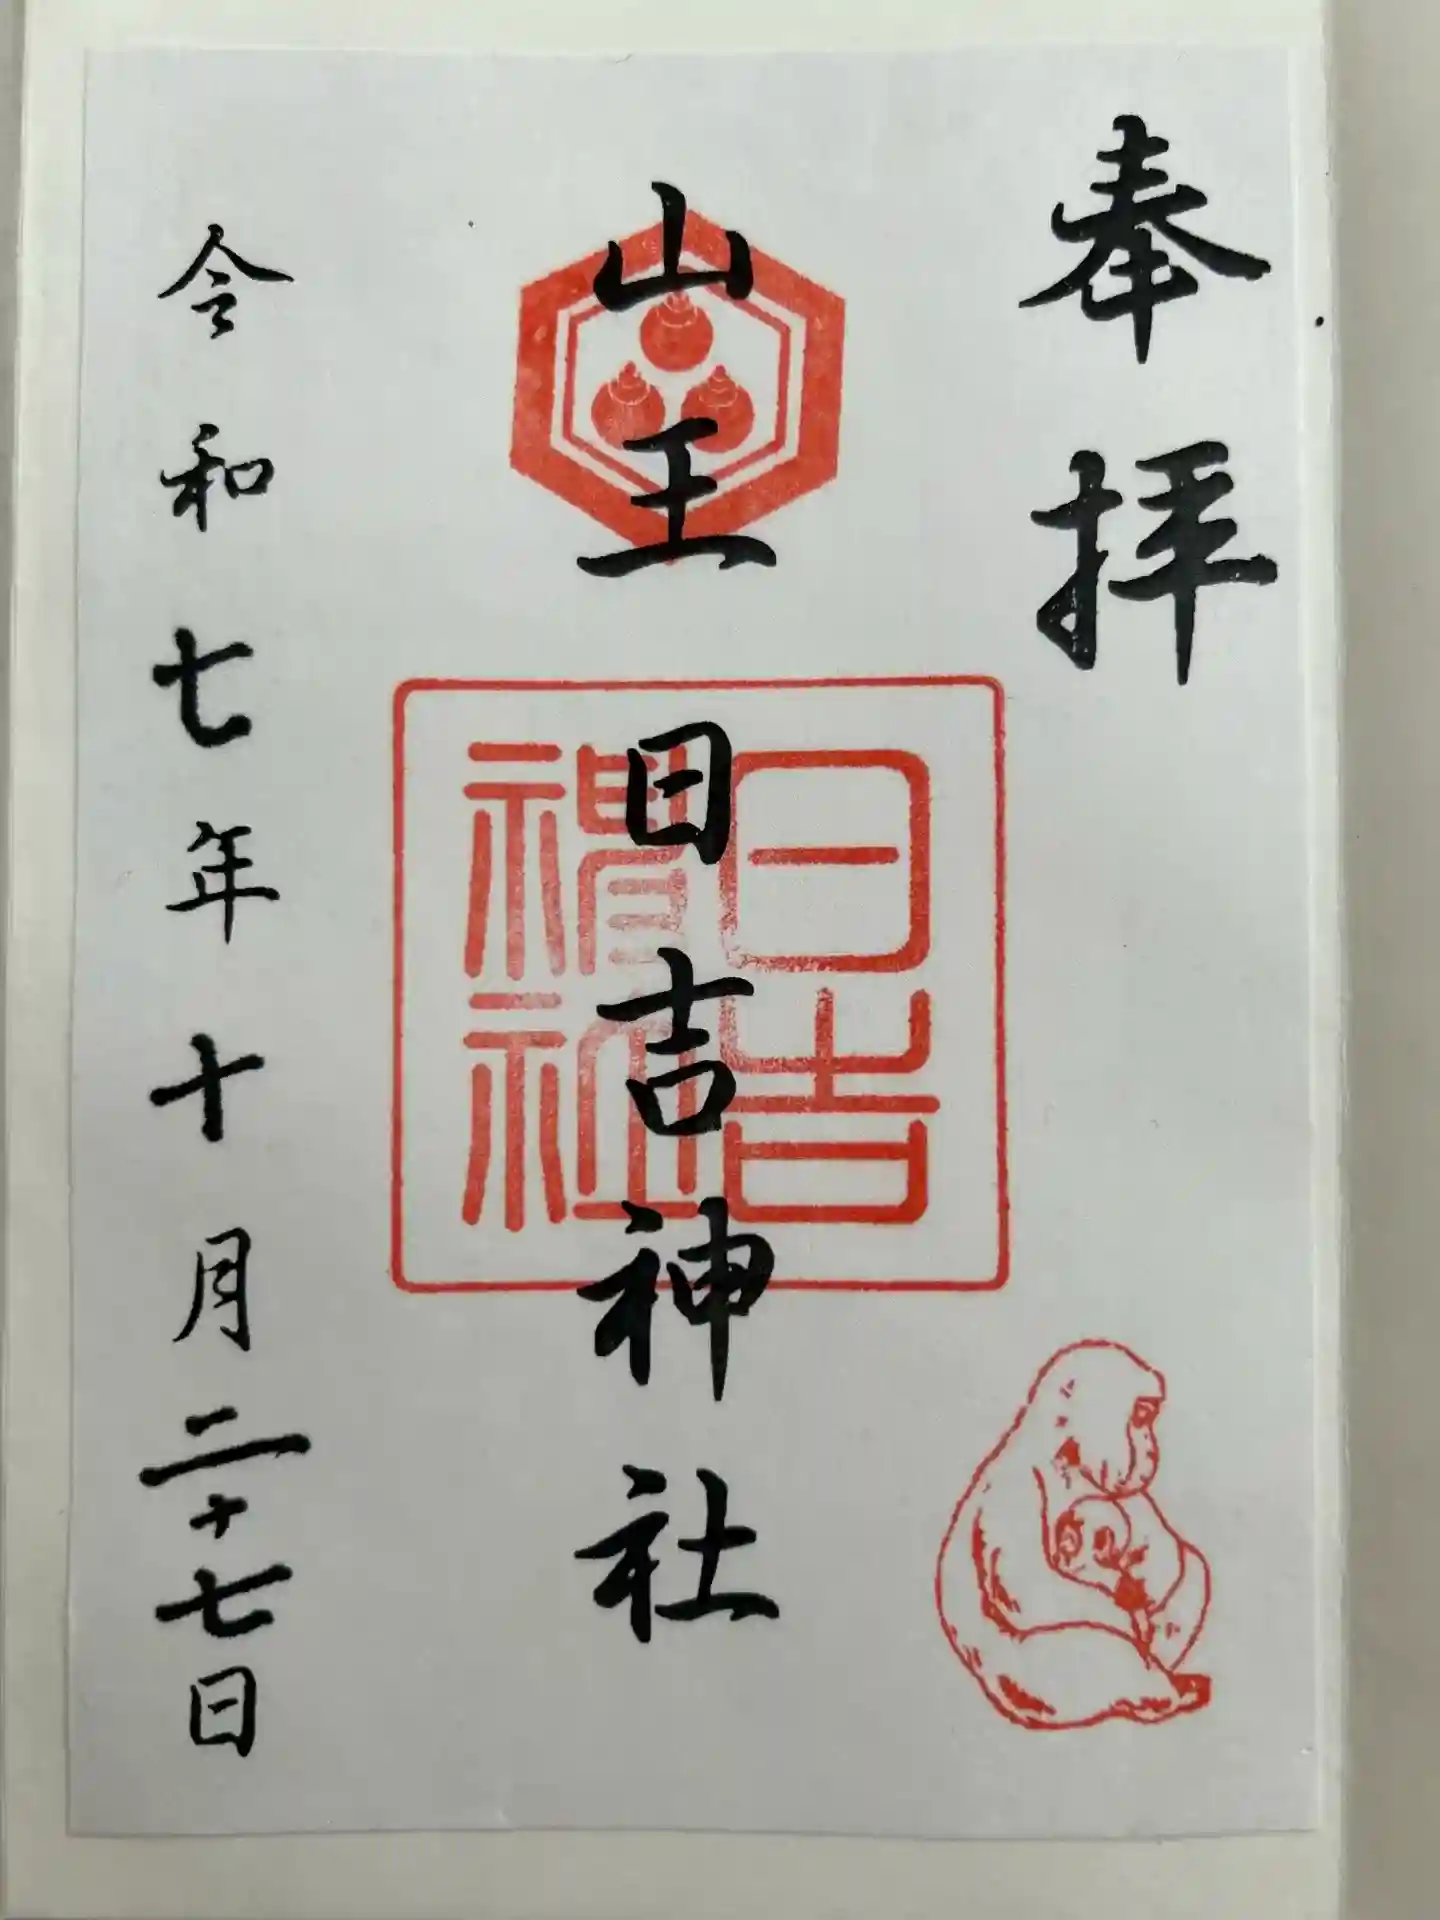 奉拝
山王日吉神社
日吉
神社
令和七年十月二十七日